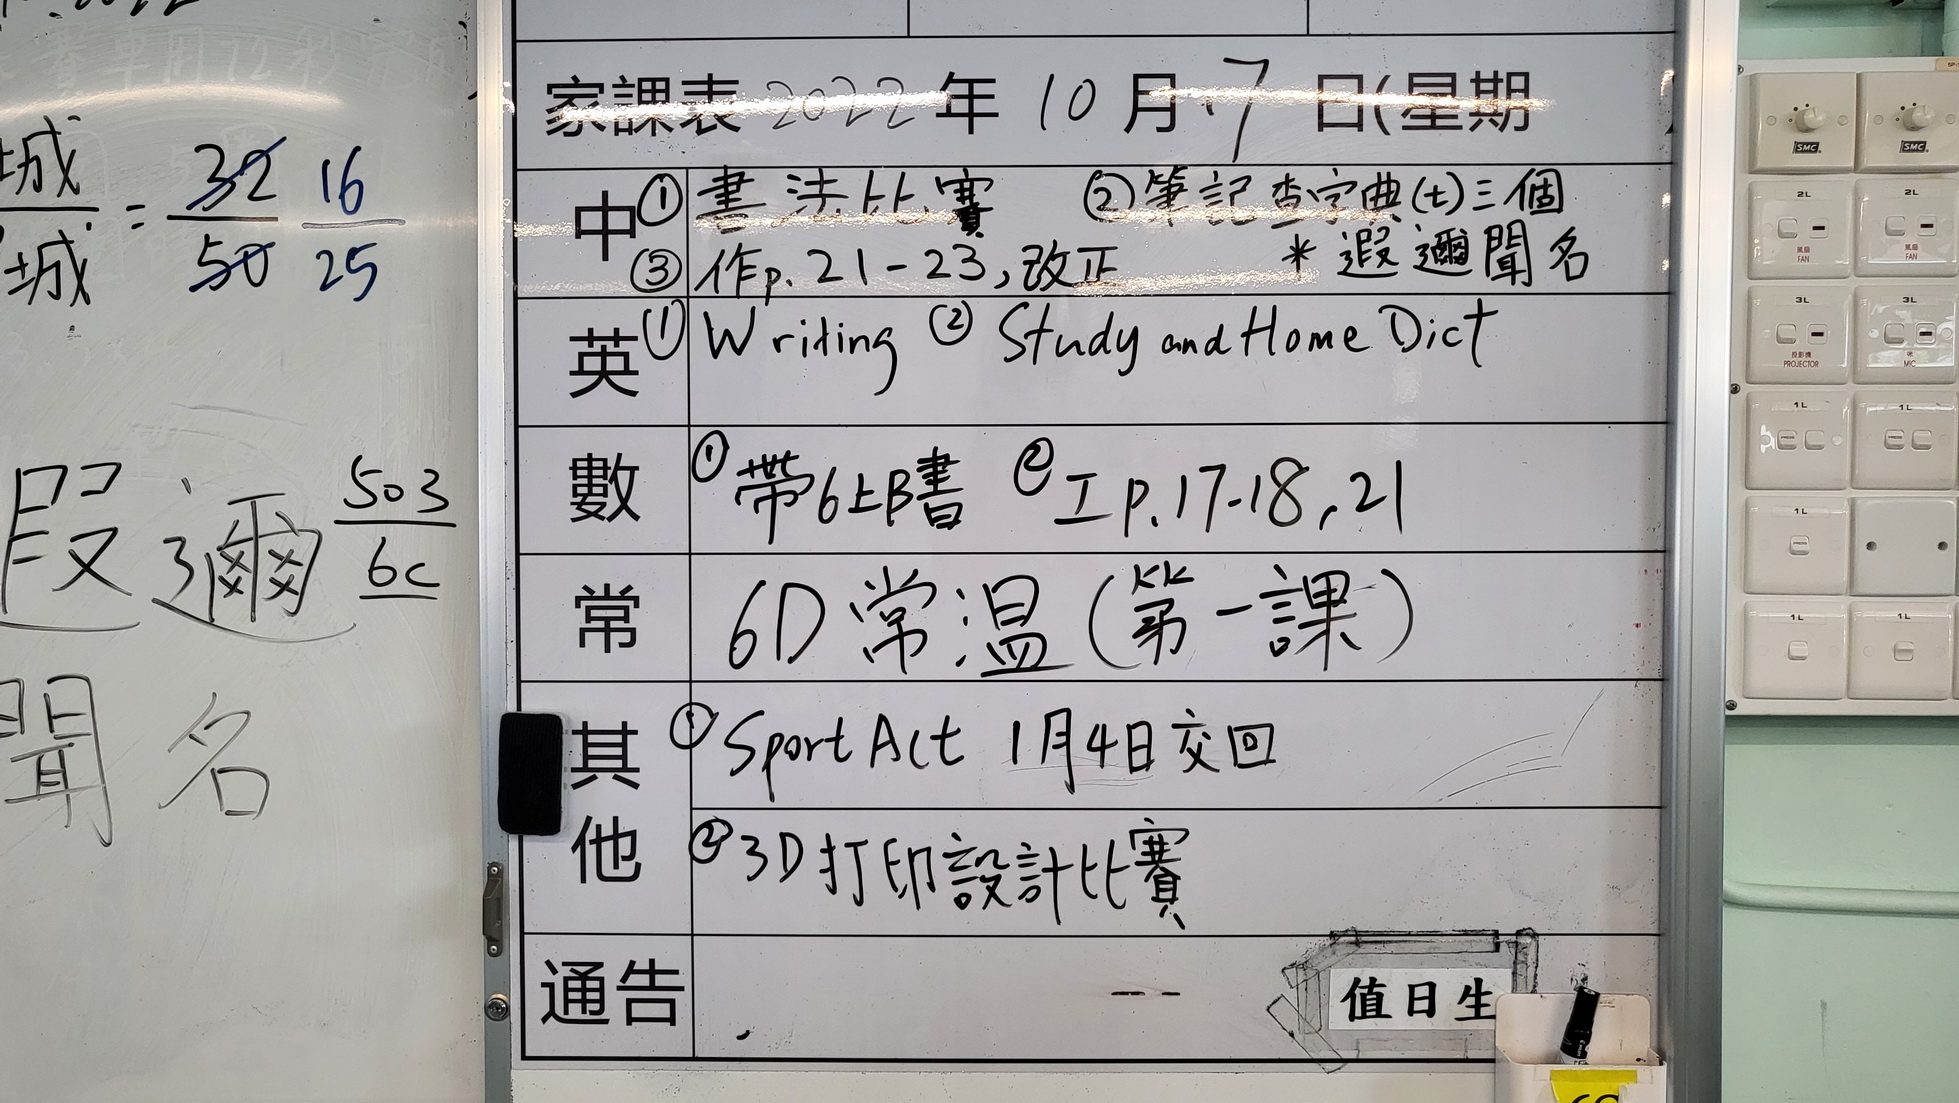 城
城
=
32
50
16
25
503
6C
段邇
聞名
家課表 2022年 10月 7日(星期
中 ① 書法比賽 ② 筆記查字典(七)三個
③ 作p.21-23,改正 * 遐邇聞名
英 ① Writing ② Study and Home Dict
數 ① 帶6上B書 ② 工p.17-18,21
常 6D常温(第一課)
其他 ① Sport Act 1月4日交回
② 3D打印設計比賽
通告
值日生
SMC
SMC
2L
風扇
FAN
2L
風扇
FAN
3L
投影機
PROJECTOR
3L
咪
MIC
1L
1L
1L
1L
1L